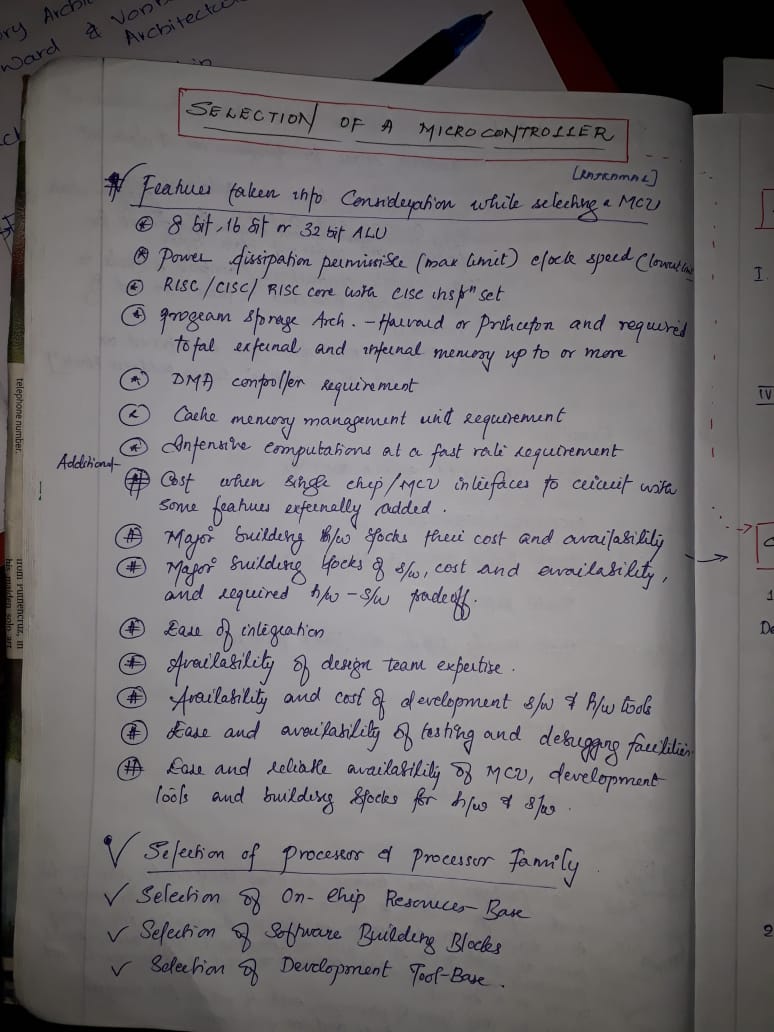 ory Archi
ward & Vonn
Architectu
SELECTION OF A MICROCONTROLLER
[RAJKAMAL]
Features taken into Consideration while selecting a MCU
8 bit, 16 bit or 32 bit ALU
Power dissipation permissible (max limit) clock speed (lowest
RISC/CISC/ RISC core with CISC instrn set
program storage Arch. - Harvard or Princeton and required
total external and internal memory up to or more
DMA controller requirement
Cache memory management unit requirement
Intensive computations at a fast rate requirement
Additional
# Cost when single chip/MCU interfaces to circuit with
some features externally added.
# Major building h/w blocks their cost and availability
# Major building blocks of s/w, cost and availability,
and required h/w - s/w tradeoff.
# Ease of integration
# Availability of design team expertise.
# Availability and cost of development s/w & h/w tools
# Ease and availability of testing and debugging facilities
# Ease and reliable availability of MCU, development
tools and building blocks for h/w & s/w.
✓ Selection of processor & processor Family
✓ Selection of On-Chip Resources-Base
✓ Selection of Software Building Blocks
✓ Selection of Development Tool-Base.
telephone number.
from Pumencruz, in
I.
IV
1
De
2